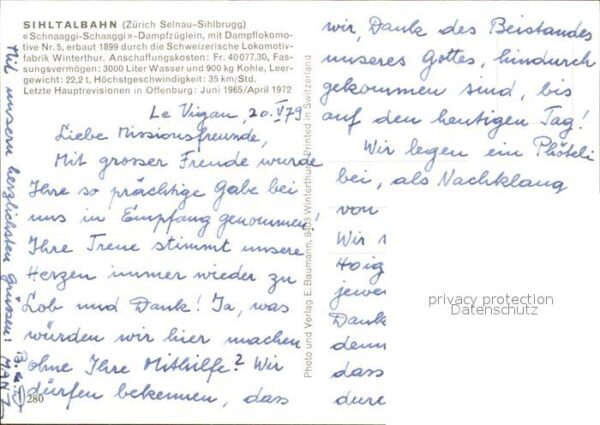 SIHLTALBAHN (Zürich Selnau-Sihlbrugg)
«Schnaaggi-Schaaggi»-Dampfzüglein, mit Dampflokomo-
tive Nr. 5, erbaut 1899 durch die Schweizerische Lokomotiv-
fabrik Winterthur. Anschaffungskosten: Fr. 40 077.30, Fas-
sungsvermögen: 3000 Liter Wasser und 900 kg Kohle, Leer-
gewicht: 22,2 t, Höchstgeschwindigkeit: 35 km/Std.
Letzte Hauptrevisionen in Offenburg: Juni 1965/April 1972
Le Vigan, 20. V 79
Liebe Missionsfreunde,
Mit grosser Freude wurde
Ihre so prächtige Gabe bei
uns in Empfang genommen!
Ihre Treue stimmt unsere
Herzen immer wieder zu
Lob und Dank! Ja, was
würden wir hier machen
ohne Ihre Mithilfe? Wir
dürfen bekennen, dass
280
Mit unsern herzlichsten Grüssen!
MANZ
Photo und Verlag E. Baumann, 8400 Winterthur Printed in Switzerland
wir, Dank des Beistandes
unseres Gottes, hindurch
gekommen sind, bis
auf den heutigen Tag!
Wir legen ein Phöteli
bei, als Nachklang
von
Wir
Hoig
jewe
Dank
denn
dass
dure
privacy protection
Datenschutz